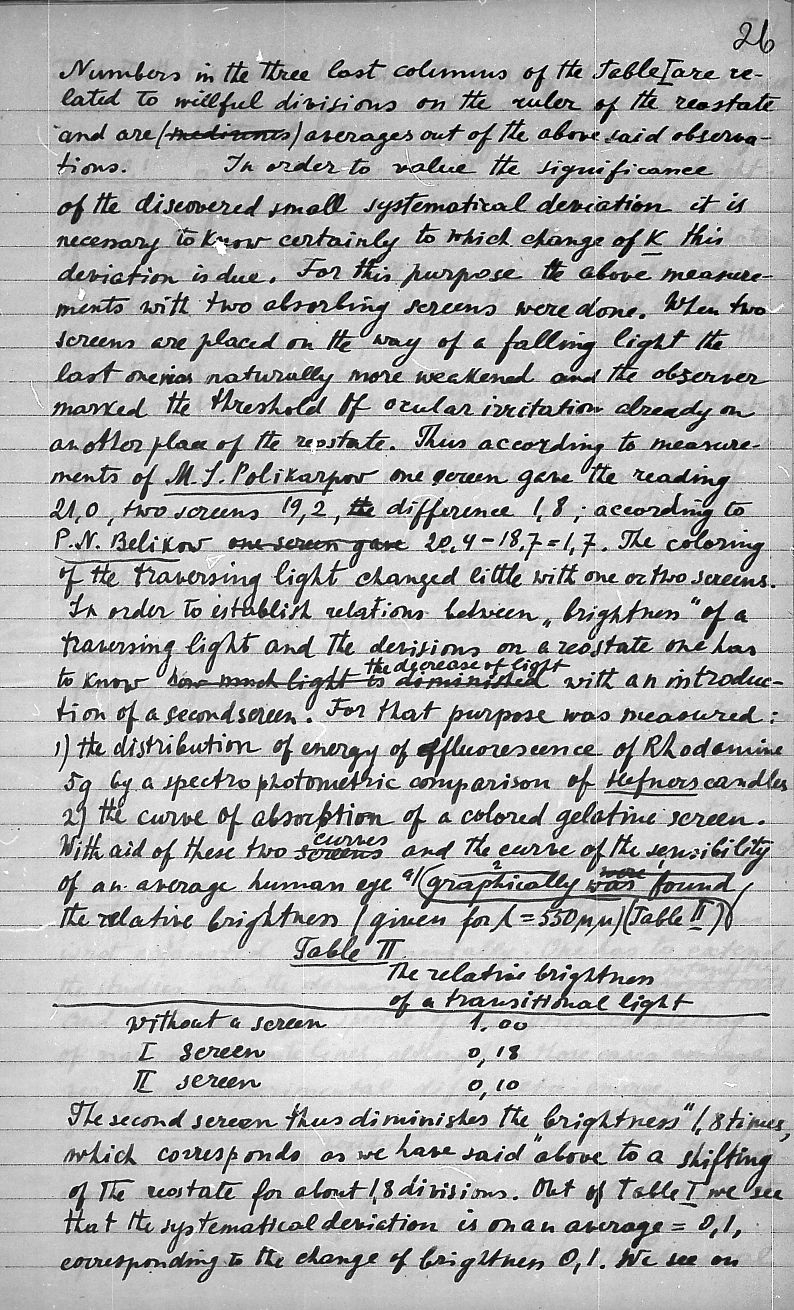 26
Numbers in the three last columns of the Table I are re-
lated to willful divisions on the ruler of the reostate
and are (mediums) averages out of the above said observa-
tions. In order to value the significance
of the discovered small systematical deviation it is
necessary to know certainly to which change of K this
deviation is due. For this purpose the above measure-
ments with two absorbing screens were done. When two
screens are placed on the way of a falling light the
last one was naturally more weakened and the observer
marked the threshold of ocular irritation already on
another place of the reostate. Thus according to measure-
ments of M. S. Polikarpov one screen gave the reading
21,0, two screens 19,2, the difference 1,8; according to
P. N. Belikow one screen gave 20,4 - 18,7 = 1,7. The coloring
of the traversing light changed little with one or two screens.
In order to establish relations between „brightness" of a
traversing light and the devisions on a reostate one has
the decrease of light
to know how much light is diminished with an introduc-
tion of a second screen. For that purpose was measured:
1) the distribution of energy of fluorescence of Rhodamine
5g by a spectrophotometric comparison of Hefners candles
2) the curve of absorbtion of a colored gelatine screen.
curves
With aid of these two screens and the curve of the sensibility
were
of an average human eye (graphically was found
the relative brightness (given for λ = 550 μμ) (Table II)
Table II
The relative brightness
of a transitional light
without a screen 1,00
I screen 0,18
II screen 0,10
The second screen thus diminishes the brightness" 1,8 times,
which corresponds as we have said above to a shifting
of the reostate for about 1,8 divisions. Out of Table I we see
that the systematical deviation is on an average = 0,1,
corresponding to the change of brightness 0,1. We see on